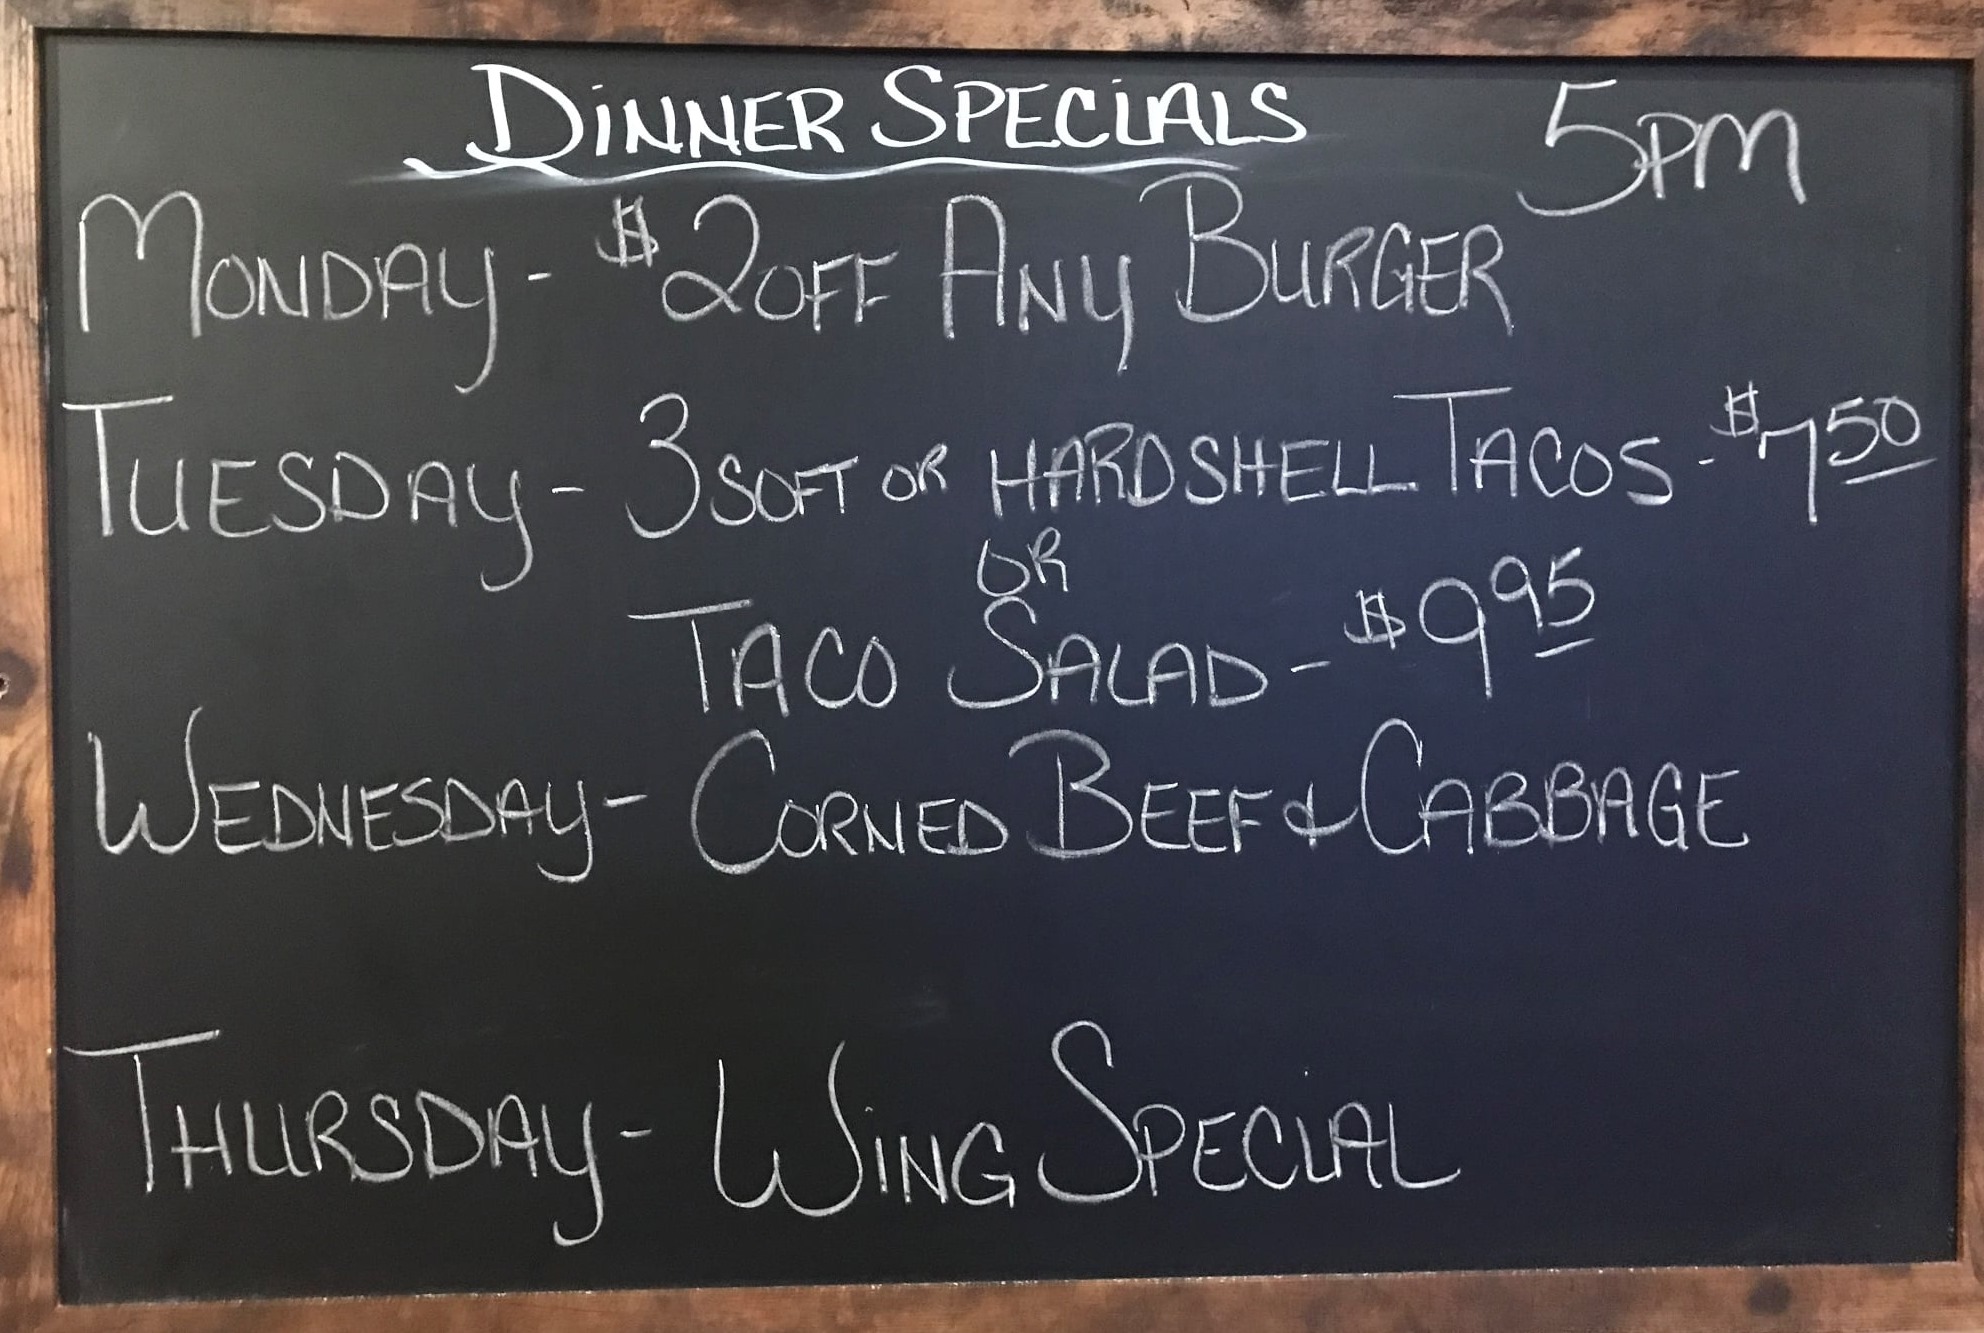 DINNER SPECIALS 5PM
MONDAY - $2 OFF ANY BURGER
TUESDAY - 3 SOFT OR HARDSHELL TACOS - $7 50
OR
TACO SALAD - $9 95
WEDNESDAY - CORNED BEEF & CABBAGE
THURSDAY - WING SPECIAL